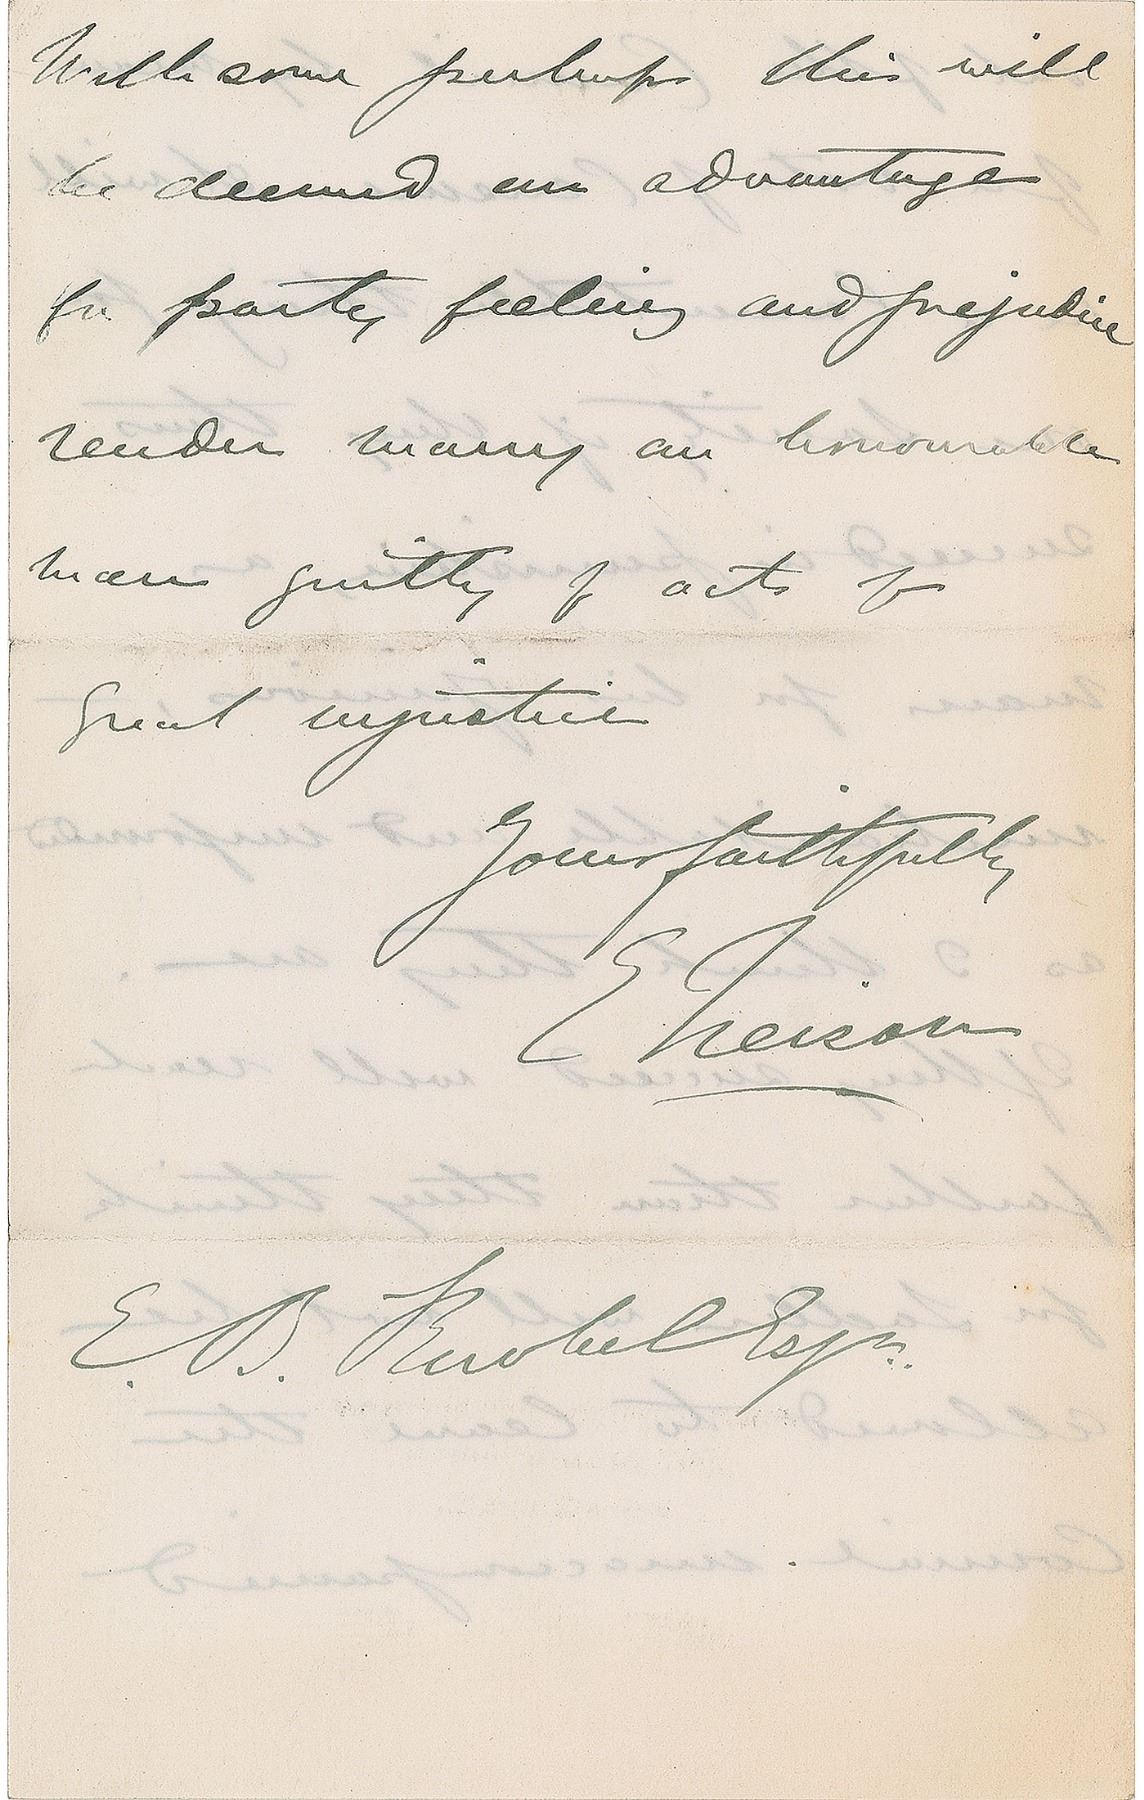 With some perhaps this will
be deemed an advantage
for party feeling and prejudice
render many an honourable
man guilty of acts of
great injustice
Yours faithfully
E Neison
E. B. Knobel Esqr.